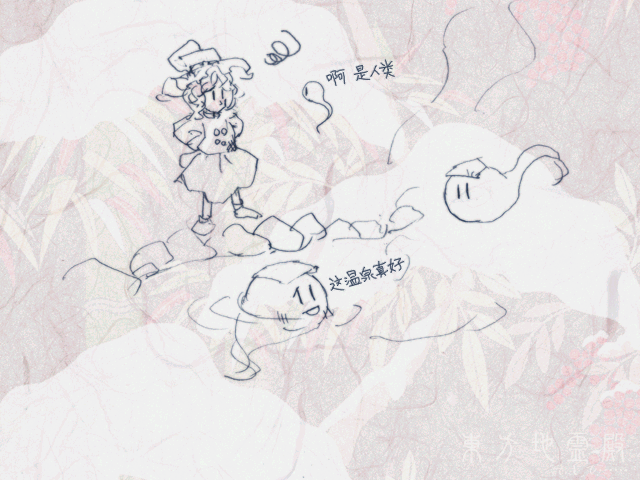 啊 是人类
这温泉真好
東方地霊殿